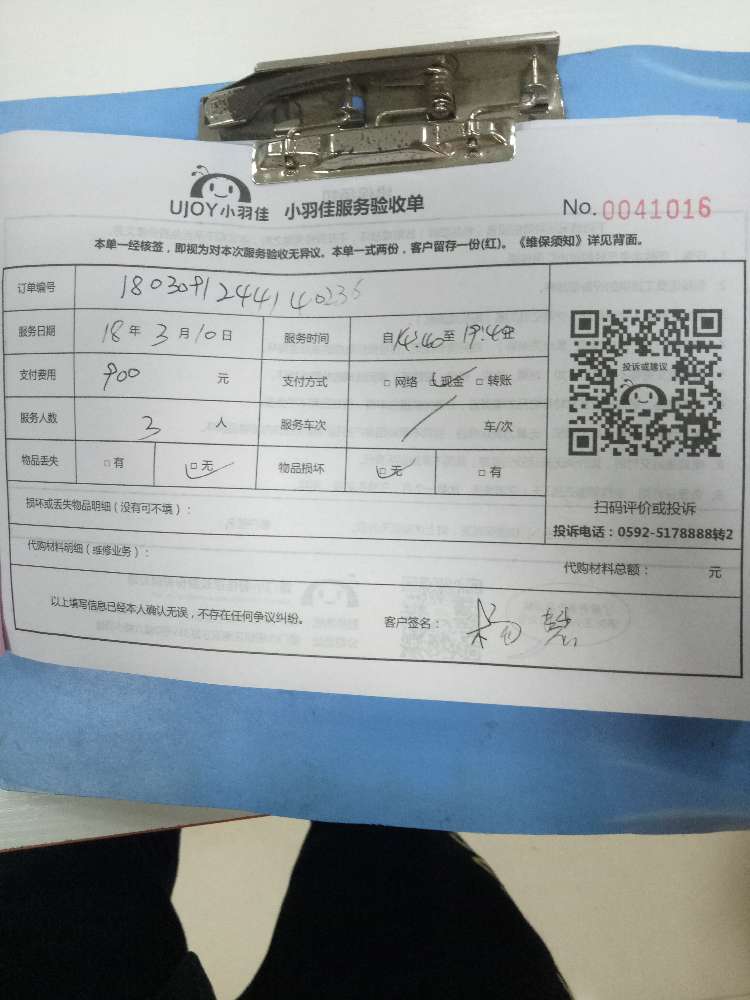 UJOY小羽佳 小羽佳服务验收单 No. 0041016
本单一经核签，即视为对本次服务验收无异议。本单一式两份，客户留存一份(红)。《维保须知》详见背面。
订单编号
服务日期 18 年 3 月 10 日 服务时间 自14:40至19:40
支付费用 900 元 支付方式 □ 网络 □ 现金 □ 转账
服务人数 3 人 服务车次 / 车/次
物品丢失 □ 有 □ 无 物品损坏 □ 无 □ 有
投诉或建议
扫码评价或投诉
投诉电话：0592-5178888转2
损坏或丢失物品明细（没有可不填）：
代购材料明细（维修业务）： 代购材料总额： 元
以上填写信息已经本人确认无误，不存在任何争议纠纷。 客户签名：